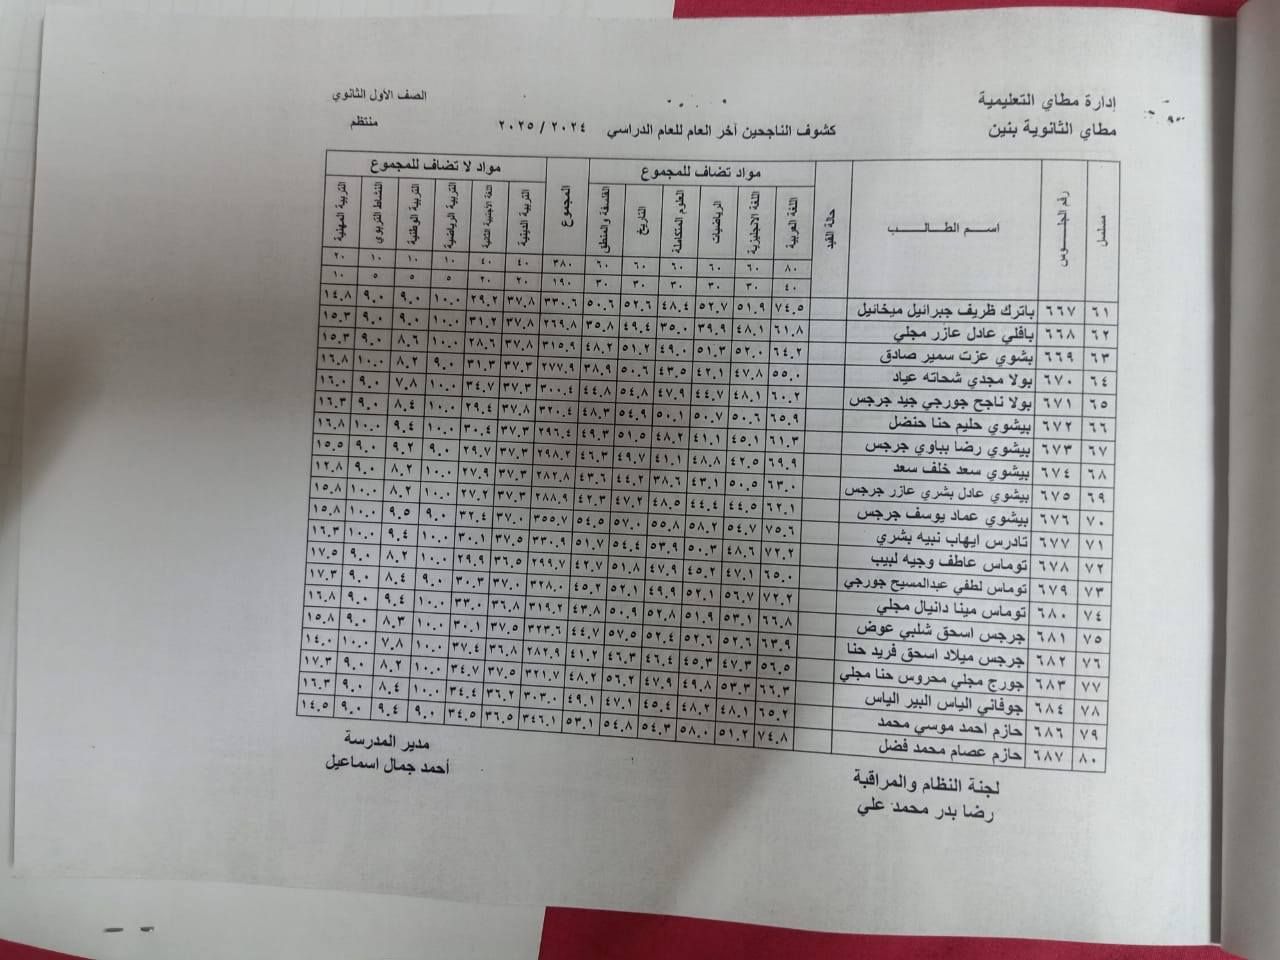 إدارة مطاي التعليمية
مطاي الثانوية بنين
كشوف الناجحين آخر العام للعام الدراسي ٢٠٢٤ / ٢٠٢٥
الصف الأول الثانوي
منتظم
مسلسل رقم الجلوس اسم الطالب حالة القيد مواد تضاف للمجموع المجموع مواد لا تضاف للمجموع
اللغة العربية اللغة الانجليزية الرياضيات العلوم المتكاملة التاريخ الفلسفة والمنطق التربية الدينية اللغة الأجنبية الثانية التربية الرياضية التربية الوطنية النشاط التربوي التربية المهنية
٨٠ ٦٠ ٦٠ ٦٠ ٦٠ ٦٠ ٣٨٠ ٤٠ ٤٠ ١٠ ١٠ ١٠ ٢٠
٤٠ ٣٠ ٣٠ ٣٠ ٣٠ ٣٠ ١٩٠ ٢٠ ٢٠ ٥ ٥ ٥ ١٠
٦١ ٦٦٧ باترك ظريف جبرائيل ميخائيل ٧٤.٥ ٥١.٩ ٥٢.٧ ٤٨.٤ ٥٢.٦ ٥٠.٦ ٣٣٠.٦ ٣٧.٨ ٢٩.٢ ١٠.٠ ٩.٠ ٩.٠ ١٤.٨
٦٢ ٦٦٨ بافلي عادل عازر مجلي ٦١.٨ ٤٨.١ ٣٩.٩ ٣٥.٠ ٤٩.٤ ٣٥.٨ ٢٦٩.٨ ٣٧.٨ ٣١.٢ ١٠.٠ ٩.٠ ٩.٠ ١٥.٣
٦٣ ٦٦٩ بشوي عزت سمير صادق ٦٤.٢ ٥٢.٠ ٥١.٣ ٤٩.٠ ٥١.٢ ٤٨.٢ ٣١٥.٩ ٣٧.٨ ٢٨.٦ ١٠.٠ ٨.٦ ٩.٠ ١٥.٣
٦٤ ٦٧٠ بولا مجدي شحاته عياد ٥٥.٠ ٤٧.٨ ٤٢.١ ٤٣.٥ ٥٠.٦ ٣٨.٩ ٢٧٧.٩ ٣٧.٣ ٣١.٣ ٩.٠ ٨.٢ ١٠.٠ ١٦.٨
٦٥ ٦٧١ بولا ناجح جورجي جيد جرجس ٦٠.٢ ٤٨.١ ٤٤.٧ ٤٧.٩ ٥٤.٨ ٤٤.٨ ٣٠٠.٤ ٣٧.٣ ٣٤.٧ ١٠.٠ ٧.٨ ٩.٠ ١٦.٠
٦٦ ٦٧٢ بيشوي حليم حنا حنضل ٦٥.٩ ٥٠.٦ ٥٠.٧ ٥٠.١ ٥٤.٩ ٤٨.٣ ٣٢٠.٤ ٣٧.٨ ٢٩.٤ ١٠.٠ ٨.٤ ٩.٠ ١٦.٣
٦٧ ٦٧٣ بيشوي رضا بباوي جرجس ٦١.٣ ٤٥.١ ٤١.١ ٤٨.٢ ٥١.٥ ٤٩.٣ ٢٩٦.٤ ٣٧.٣ ٣٠.٤ ١٠.٠ ٩.٤ ١٠.٠ ١٦.٨
٦٨ ٦٧٤ بيشوي سعد خلف سعد ٦٩.٩ ٤٢.٥ ٤٨.٨ ٤١.١ ٤٩.٧ ٤٦.٣ ٢٩٨.٢ ٣٧.٣ ٢٩.٧ ٩.٠ ٩.٢ ٩.٠ ١٥.٥
٦٩ ٦٧٥ بيشوي عادل بشري عازر جرجس ٦٣.٠ ٥٠.٥ ٤٣.١ ٣٨.٦ ٤٤.٢ ٤٣.٦ ٢٨٢.٨ ٣٧.٣ ٢٧.٩ ١٠.٠ ٨.٢ ٩.٠ ١٢.٨
٧٠ ٦٧٦ بيشوي عماد يوسف جرجس ٦٢.١ ٤٤.٥ ٤٤.٤ ٤٨.٥ ٤٧.٢ ٤٢.٣ ٢٨٨.٩ ٣٧.٣ ٢٧.٢ ١٠.٠ ٨.٢ ١٠.٠ ١٥.٨
٧١ ٦٧٧ تادرس ايهاب نبيه بشري ٧٥.٦ ٥٤.٧ ٥٨.٢ ٥٥.٨ ٥٧.٠ ٥٤.٥ ٣٥٥.٧ ٣٧.٠ ٣٢.٤ ٩.٠ ٩.٥ ١٠.٠ ١٥.٨
٧٢ ٦٧٨ توماس عاطف وجيه لبيب ٧٢.٢ ٤٨.٦ ٥٠.٣ ٥٣.٩ ٥٤.٤ ٥١.٧ ٣٣٠.٩ ٣٧.٥ ٣٠.١ ١٠.٠ ٩.٤ ١٠.٠ ١٦.٣
٧٣ ٦٧٩ توماس لطفي عبدالمسيح جورجي ٦٥.٠ ٤٧.١ ٤٥.٢ ٤٧.٩ ٥١.٨ ٤٢.٧ ٢٩٩.٧ ٣٦.٥ ٢٩.٩ ١٠.٠ ٨.٢ ٩.٠ ١٧.٥
٧٤ ٦٨٠ توماس مينا دانيال مجلي ٧٢.٢ ٥٦.٧ ٥٢.١ ٤٩.٩ ٥٢.١ ٤٥.٢ ٣٢٨.٠ ٣٧.٠ ٣٠.٣ ٩.٠ ٨.٤ ٩.٠ ١٧.٣
٧٥ ٦٨١ جرجس اسحق شلبي عوض ٦٦.٨ ٥٣.١ ٥١.٩ ٥٢.٨ ٥٠.٩ ٤٣.٨ ٣١٩.٢ ٣٦.٨ ٣٣.٠ ١٠.٠ ٩.٤ ٩.٠ ١٦.٨
٧٦ ٦٨٢ جرجس ميلاد اسحق فريد حنا ٦٣.٩ ٥٢.٦ ٥٢.٦ ٥٢.٤ ٥٧.٥ ٤٤.٧ ٣٢٣.٦ ٣٧.٥ ٣٠.١ ١٠.٠ ٨.٣ ٩.٠ ١٥.٨
٧٧ ٦٨٣ جورج مجلي محروس حنا مجلي ٥٦.٥ ٤٧.٣ ٤٥.٣ ٤٦.٤ ٤٦.٣ ٤١.٢ ٢٨٢.٩ ٣٦.٨ ٣٧.٤ ١٠.٠ ٧.٨ ١٠.٠ ١٤.٠
٧٨ ٦٨٤ جوفاني الياس البير الياس ٦٦.٣ ٥٣.٣ ٤٩.٨ ٤٧.٩ ٥٦.٢ ٤٨.٢ ٣٢١.٧ ٣٧.٥ ٣٤.٧ ١٠.٠ ٨.٢ ٩.٠ ١٧.٣
٧٩ ٦٨٦ حازم احمد موسي محمد ٦٥.٢ ٤٨.١ ٤٨.٢ ٤٥.٤ ٤٧.١ ٤٩.١ ٣٠٣.٠ ٣٦.٢ ٣٤.٤ ١٠.٠ ٨.٤ ٩.٠ ١٦.٣
٨٠ ٦٨٧ حازم عصام محمد فضل ٧٤.٨ ٥١.٢ ٥٨.٠ ٥٤.٣ ٥٤.٨ ٥٣.١ ٣٤٦.١ ٣٦.٥ ٣٤.٥ ٩.٠ ٩.٤ ٩.٠ ١٤.٥
لجنة النظام والمراقبة
رضا بدر محمد علي
مدير المدرسة
أحمد جمال اسماعيل